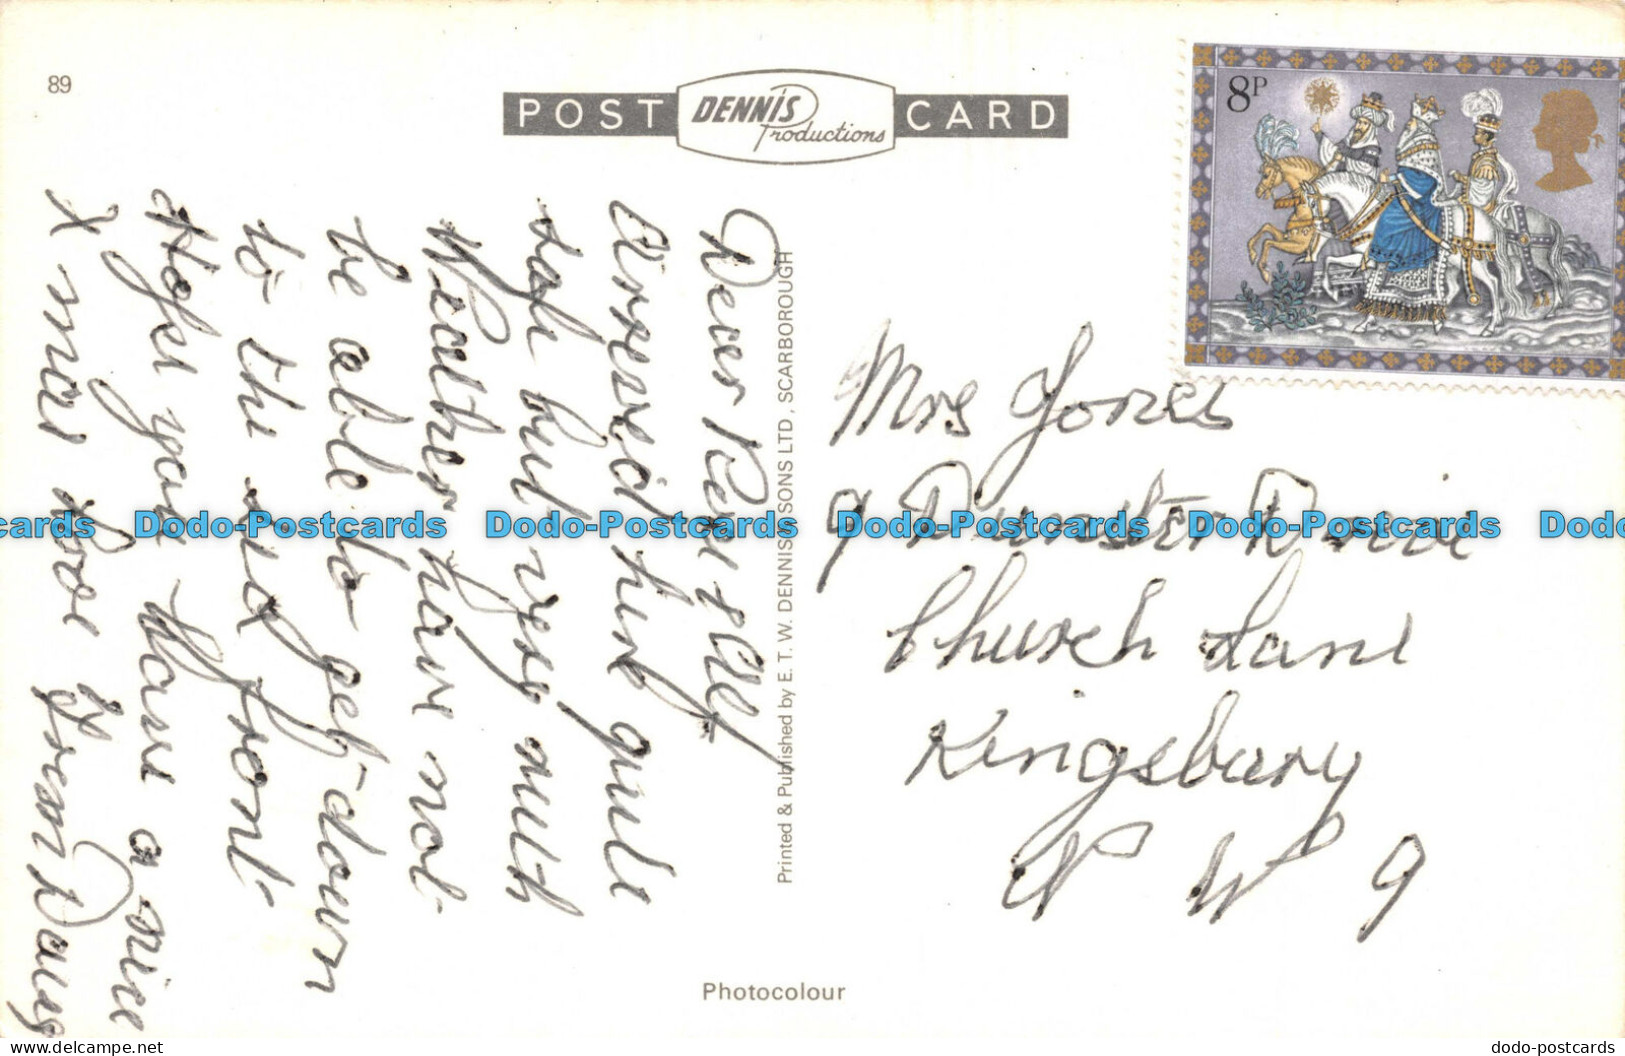 89
POST DENNIS Productions CARD
8P
Dear Perl & Alf
Arrived here quite
safe but very much
Weather have not
be able to get down
to the sea front
Hope you Have a nice
X mas Love from
Printed & Published by E. T. W. DENNIS & SONS LTD, SCARBOROUGH
Mrs Jones
9 Dunster Drive
Church Lane
Kingsbury
N W 9
Photocolour
Dodo-Postcards Dodo-Postcards Dodo-Postcards Dodo-Postcards Dodo-Postcards
dodo-postcards